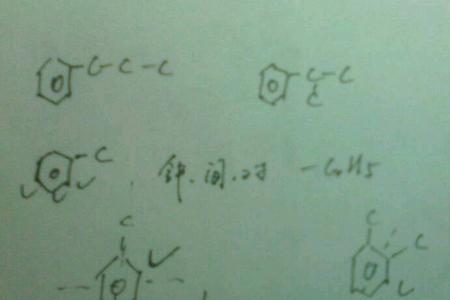 C-C-C C-C
C
C 邻、间、对 -C2H5
C C
C